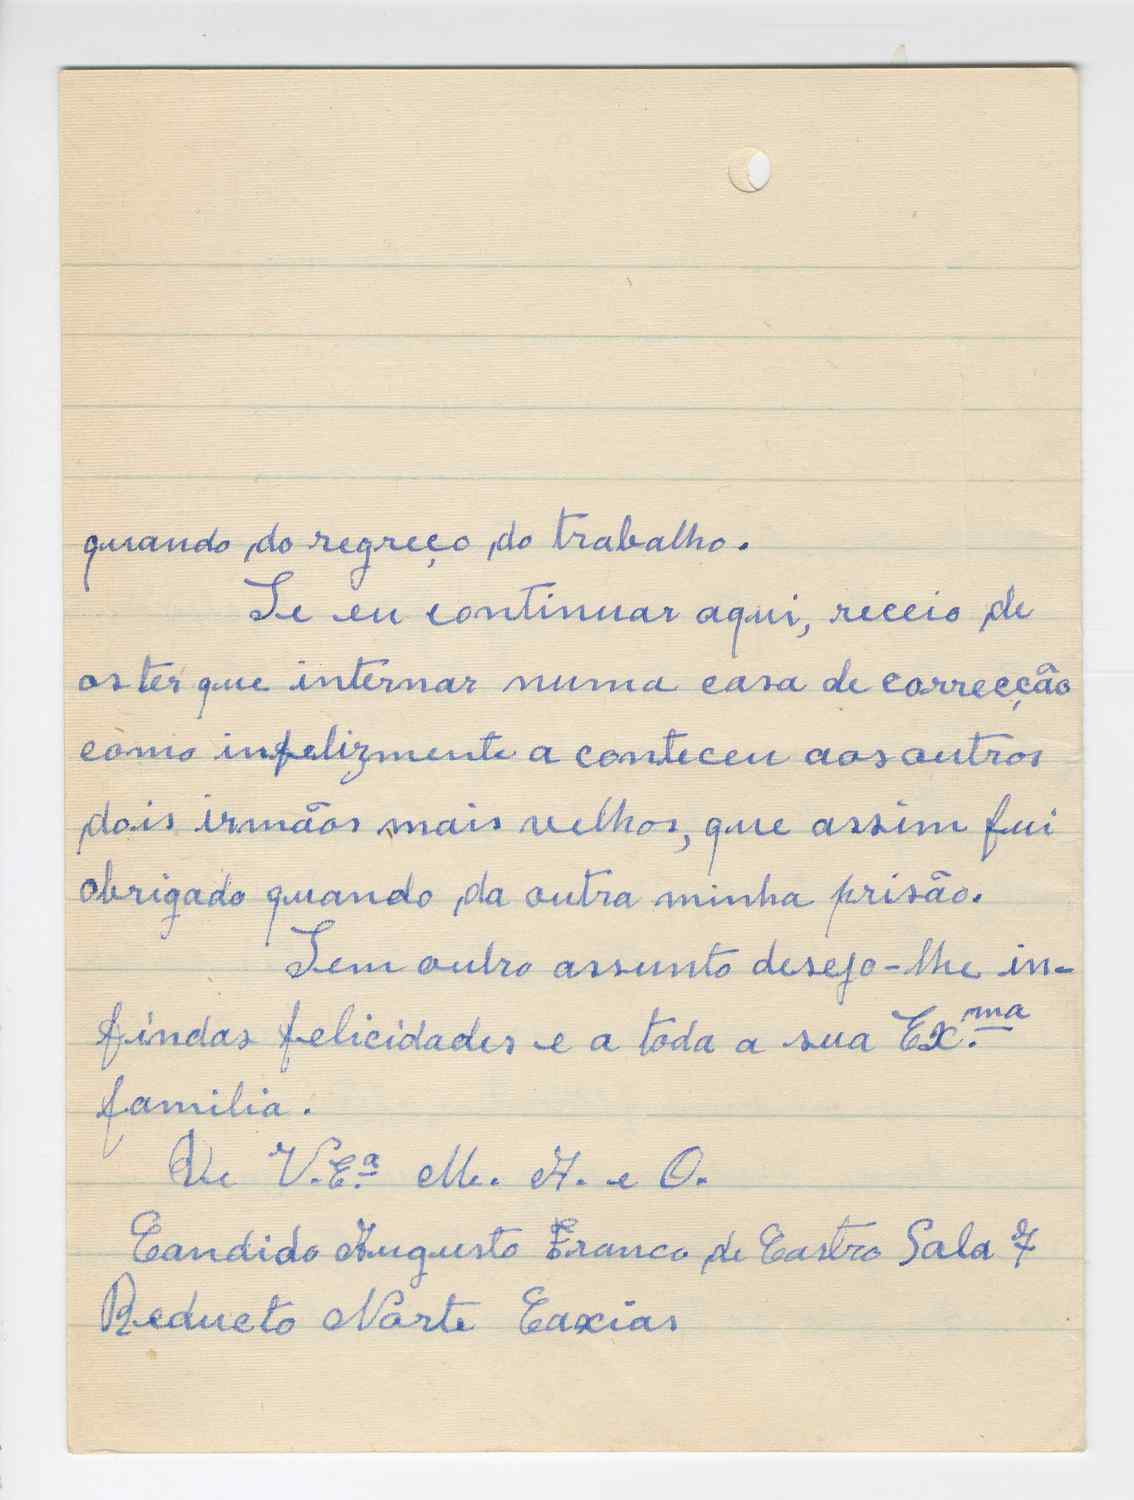 quando do regreço do trabalho.
Se eu continuar aqui, receio de
os ter que internar numa casa de correcção
como infelizmente a conteceu aos outros
dois irmãos mais velhos, que assim fui
obrigado quando da outra minha prisão.
Sem outro assunto desejo-lhe in-
findas felicidades e a toda a sua Ex.ma
familia.
De V. E.ª M. A. e O.
Candido Augusto Franco de Castro Sala 7
Reducto Norte Caxias